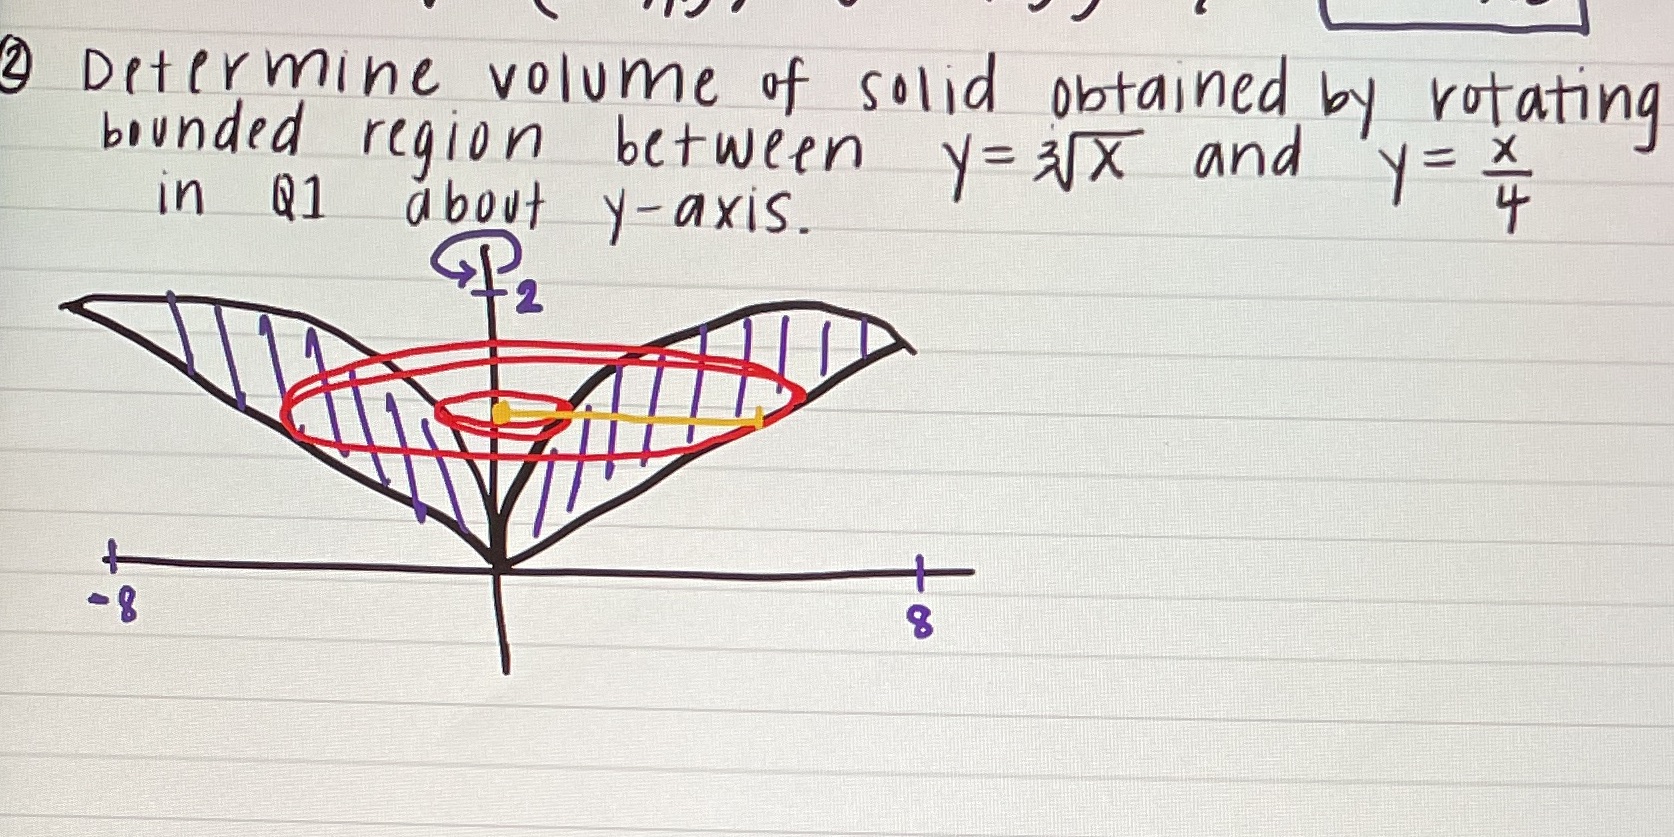 ② Determine volume of solid obtained by rotating
bounded region between y = ∛x and y = x/4
in Q1 about y-axis.
2
-8
8